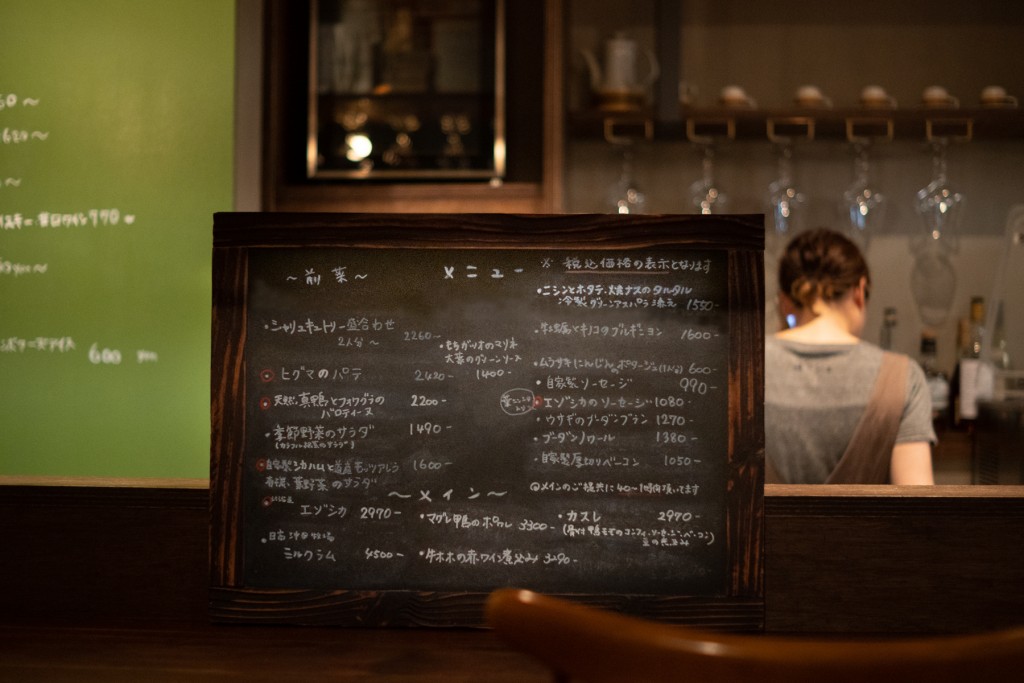 ～前菜～
メニュー
※ 税込価格の表示となります
・シャリュキュトリー盛合わせ
2人分～ 2260-
・ヒグマのパテ 2420-
・天然真鴨とフォワグラの
バロティーヌ 2200-
・季節野菜のサラダ 1490-
・自家製シカハムと モッツアレラ 1600-
葉野菜のサラダ
・ニシンとホタテ、焼ナスのタルタル
冷製グリーンアスパラ添え 1550-
のマリネ
大葉のグリーンソース
1400-
のブルギニヨン 1600-
・ムラサキにんじんのポタージュ 600-
・自家製ソーセージ 990-
エゾシカのソーセージ 1080-
・ウサギのブーダンブラン 1270-
・ブーダンノワール 1380-
・自家製厚切りベーコン 1050-
＠メインのご提供に40～1時間頂いてます
～メイン～
エゾシカ 2970-
ミルクラム 4500-
・マグレ鴨のポワレ 3300-
・牛ホホの赤ワイン煮込み 3290-
・カスレ 2970-
(骨付鴨ももの コンフィ、ソーセージ、ベーコン)
770
600 yen